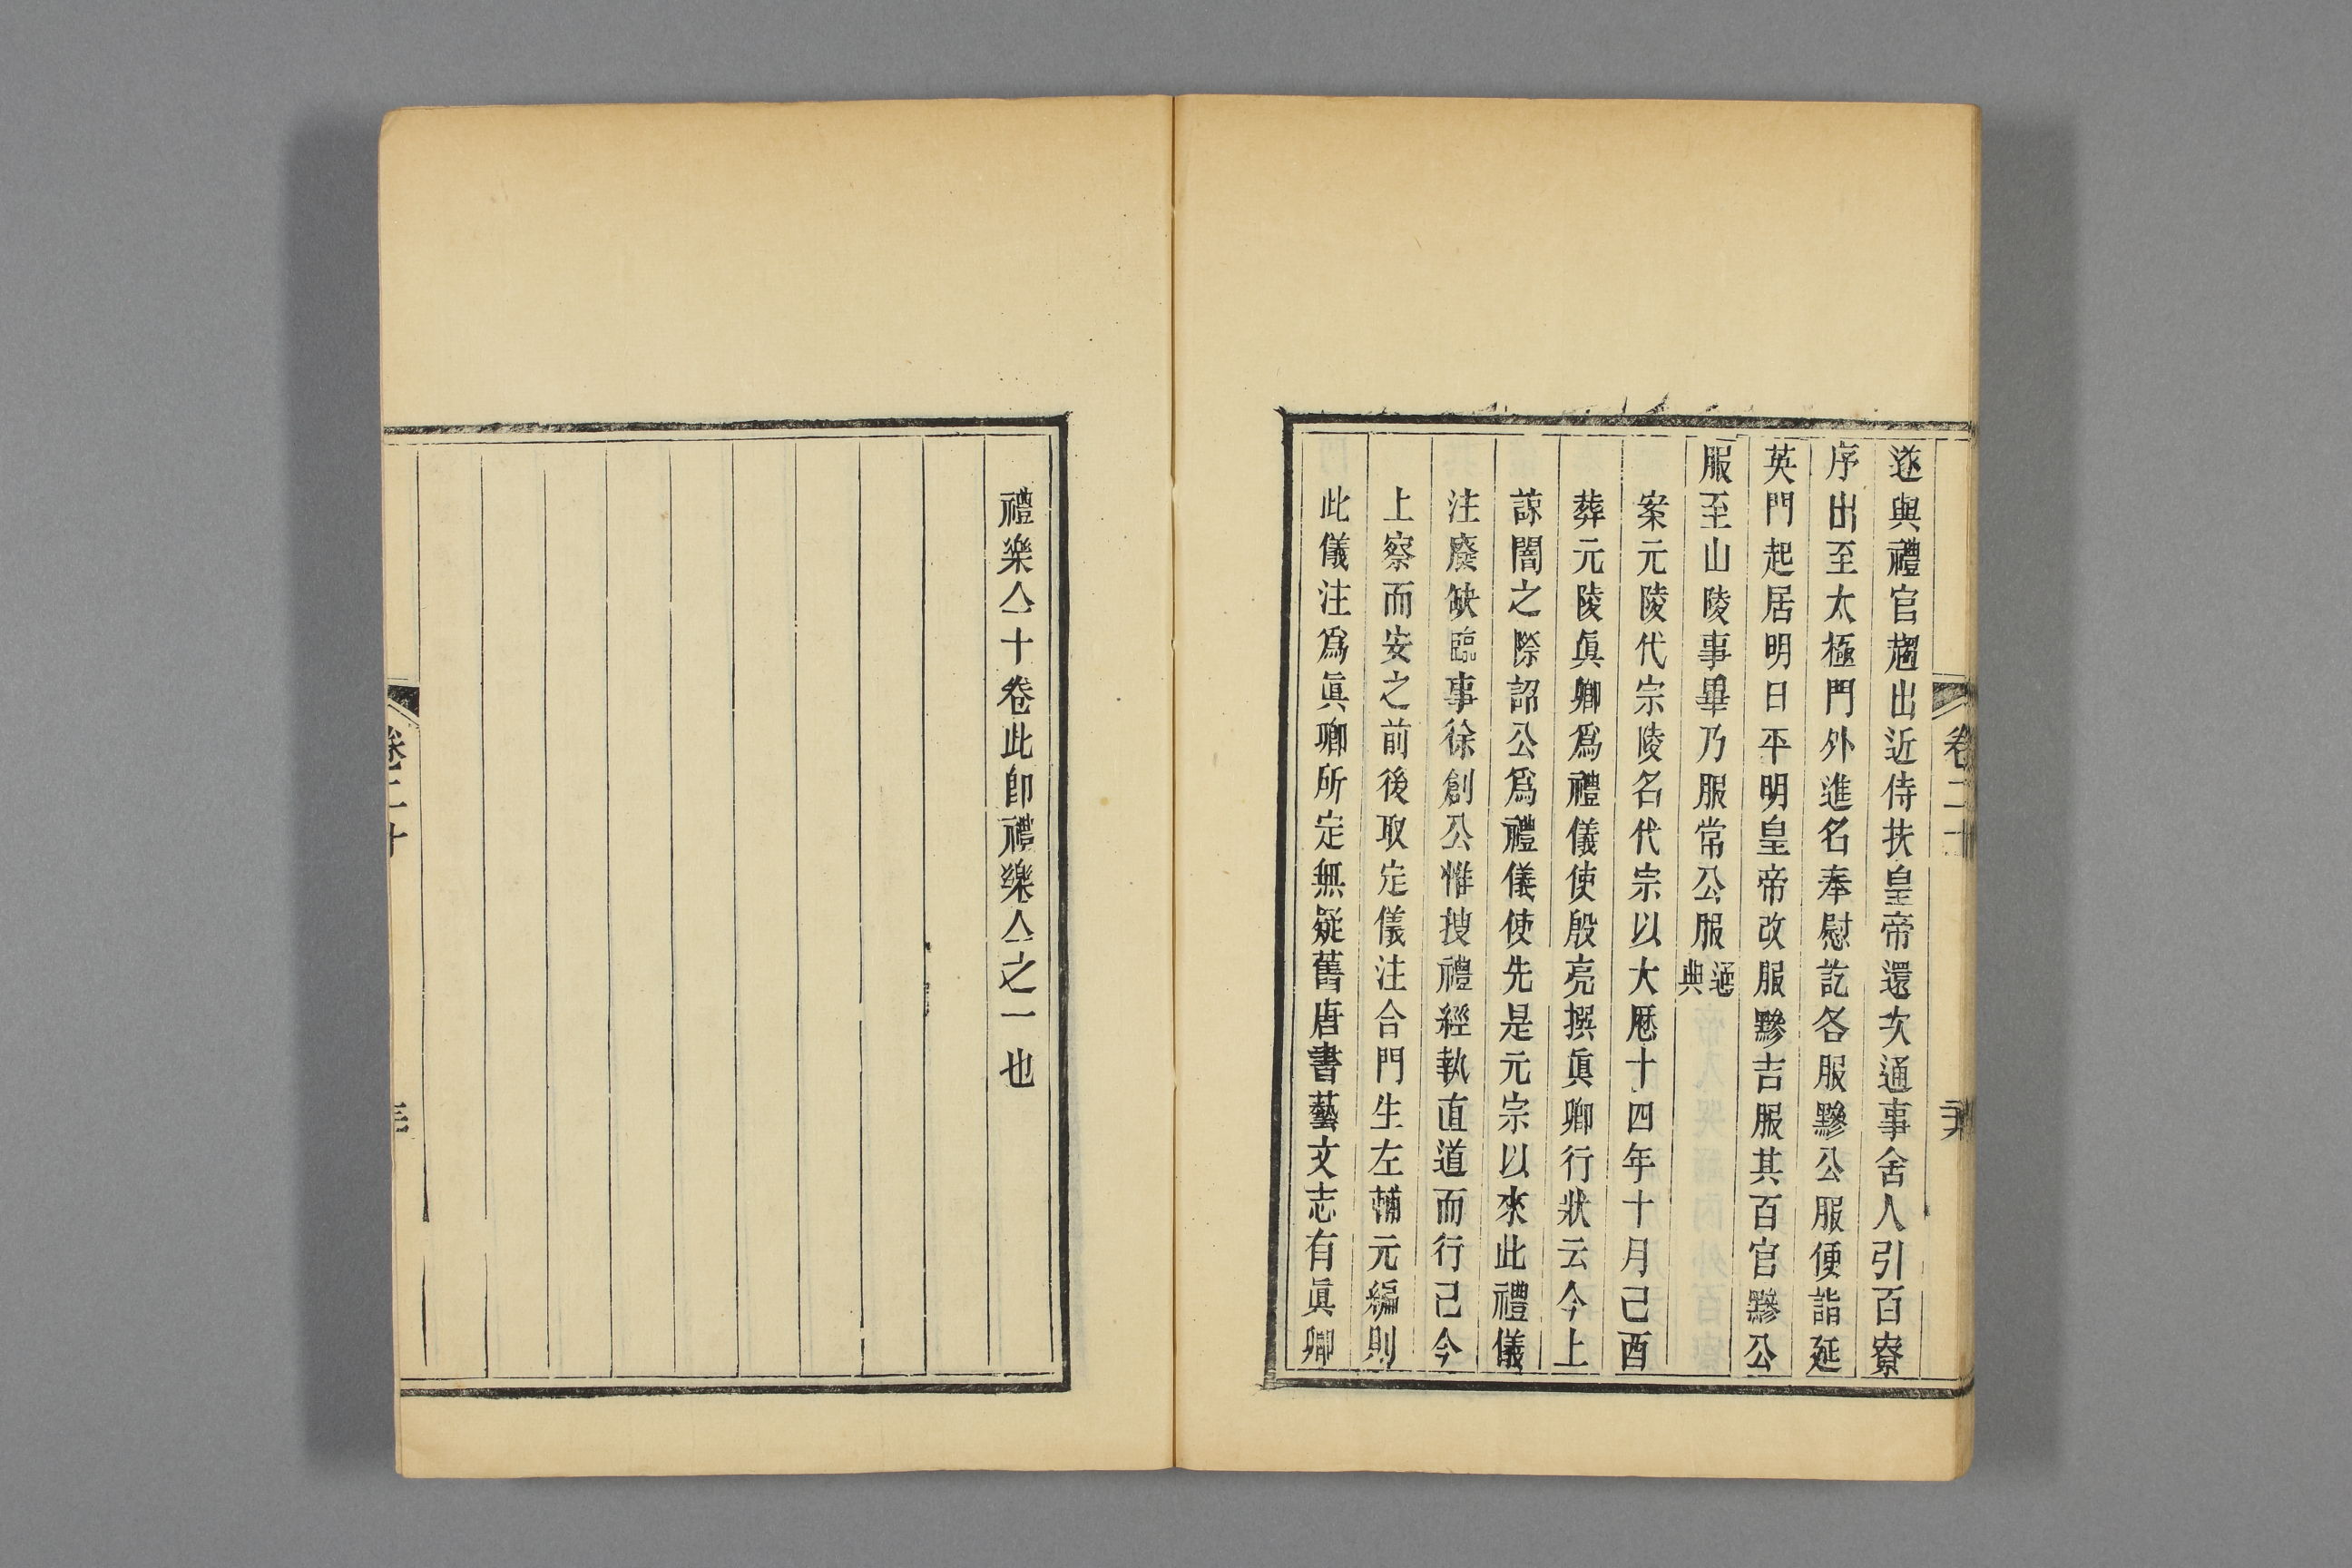 遂與禮官趨出近侍扶皇帝還次通事舍人引百寮
序出至太極門外進名奉慰訖各服黲公服便詣延
英門起居明日平明皇帝改服黲吉服其百官黲公
服至山陵事畢乃服常公服通典
案元陵代宗陵名代宗以大厯十四年十月己酉
葬元陵眞卿爲禮儀使殷亮撰眞卿行狀云今上
諒闇之際詔公爲禮儀使先是元宗以來此禮儀
注廢缺臨事徐創公惟搜禮經執直道而行己今
上察而安之前後取定儀注合門生左輔元編則
此儀注爲眞卿所定無疑舊唐書藝文志有眞卿
禮樂亼十卷此卽禮樂亼之一也
卷二十
卷二十